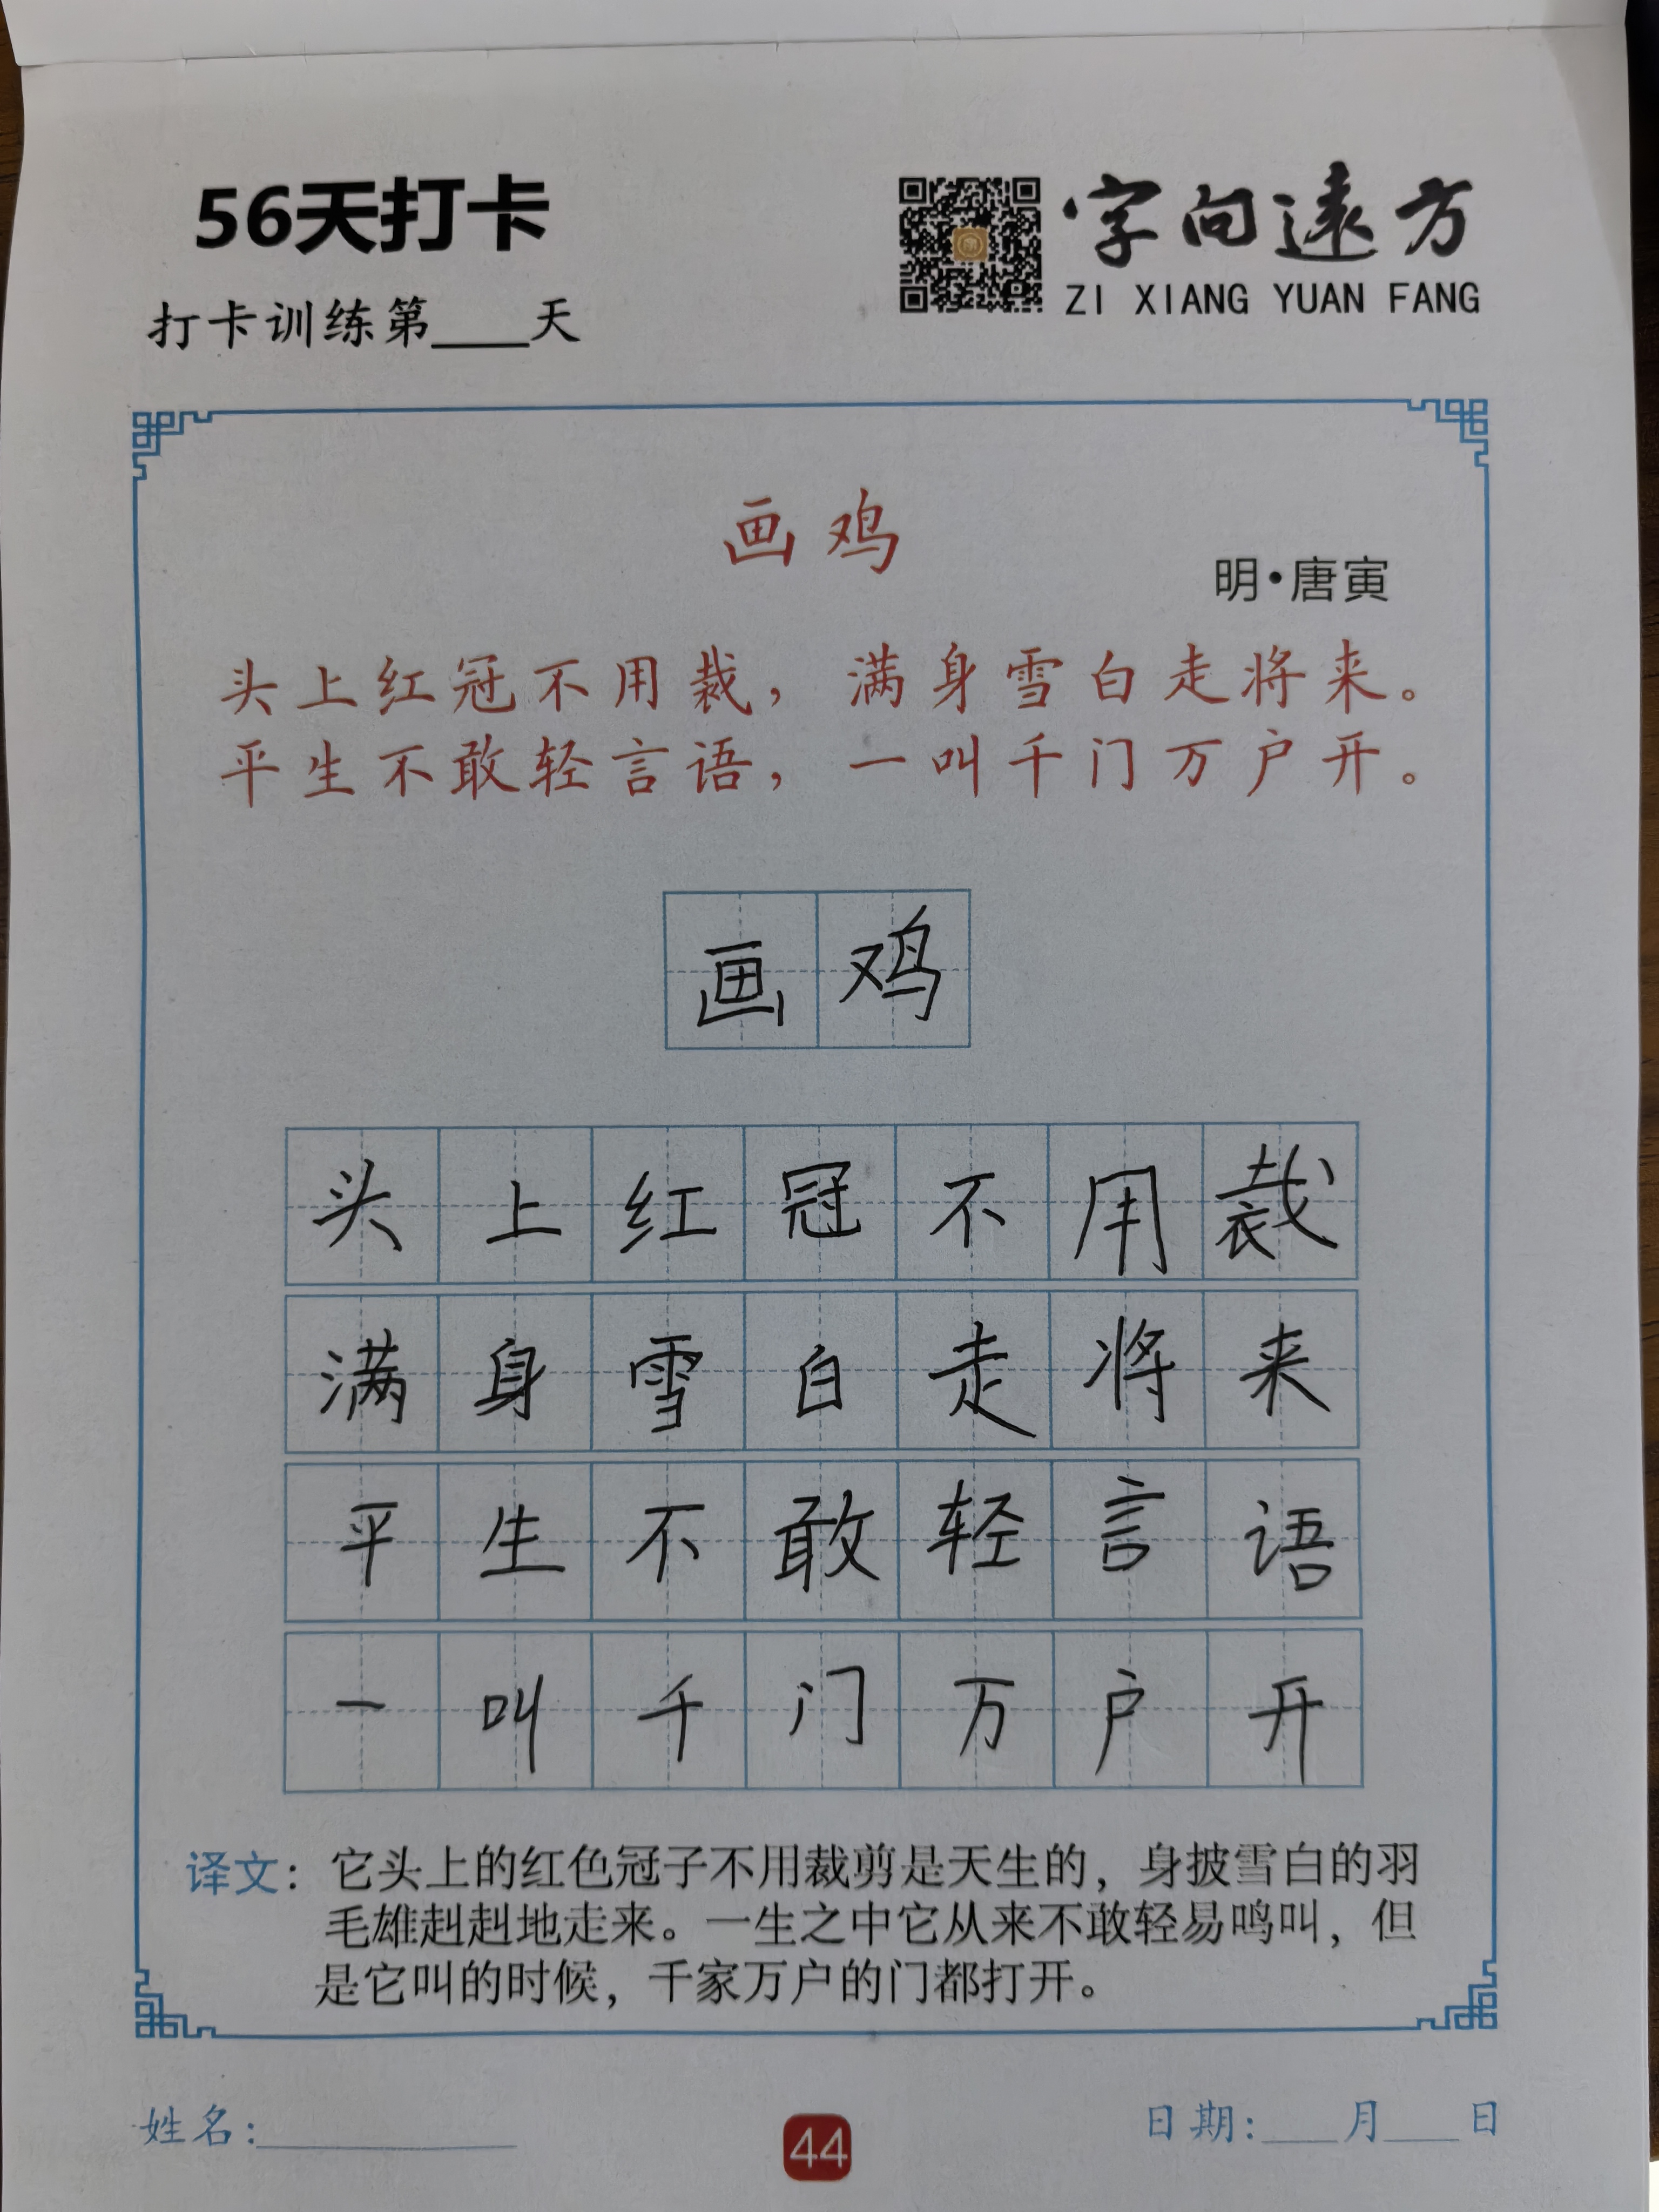 56天打卡
字向遠方
ZI XIANG YUAN FANG
打卡训练第____天
画鸡
明·唐寅
头上红冠不用裁，满身雪白走将来。
平生不敢轻言语，一叫千门万户开。
画鸡
头上红冠不用裁
满身雪白走将来
平生不敢轻言语
一叫千门万户开
译文：它头上的红色冠子不用裁剪是天生的，身披雪白的羽
毛雄赳赳地走来。一生之中它从来不敢轻易鸣叫，但
是它叫的时候，千家万户的门都打开。
姓名：__________
44
日期：___月___日